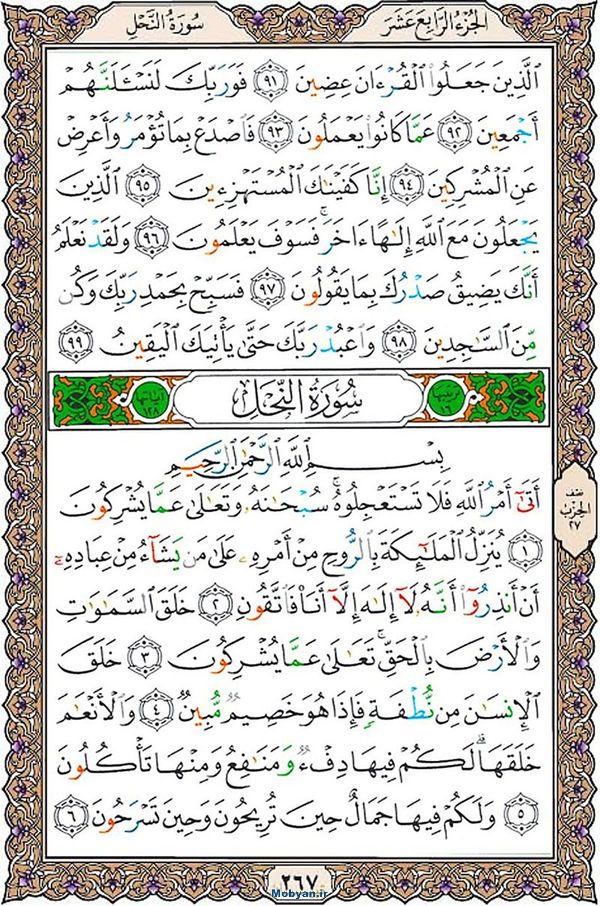 الجُزءُ الرَّابِعَ عَشَرَ
سُورَةُ النَّحْلِ
الَّذِينَ جَعَلُوا الْقُرْءَانَ عِضِينَ ٩١ فَوَرَبِّكَ لَنَسْـَٔلَنَّهُمْ
أَجْمَعِينَ ٩٢ عَمَّا كَانُوا يَعْمَلُونَ ٩٣ فَاصْدَعْ بِمَا تُؤْمَرُ وَأَعْرِضْ
عَنِ الْمُشْرِكِينَ ٩٤ إِنَّا كَفَيْنَاكَ الْمُسْتَهْزِءِينَ ٩٥ الَّذِينَ
يَجْعَلُونَ مَعَ اللَّهِ إِلَـٰهًا ءَاخَرَ ۚ فَسَوْفَ يَعْلَمُونَ ٩٦ وَلَقَدْ نَعْلَمُ
أَنَّكَ يَضِيقُ صَدْرُكَ بِمَا يَقُولُونَ ٩٧ فَسَبِّحْ بِحَمْدِ رَبِّكَ وَكُن
مِّنَ السَّـٰجِدِينَ ٩٨ وَاعْبُدْ رَبَّكَ حَتَّىٰ يَأْتِيَكَ الْيَقِينُ ٩٩
ترتيبها ١٦
سُورَةُ النَّحْلِ
آياتها ١٢٨
بِسْمِ اللَّهِ الرَّحْمَـٰنِ الرَّحِيمِ
أَتَىٰٓ أَمْرُ اللَّهِ فَلَا تَسْتَعْجِلُوهُ ۚ سُبْحَـٰنَهُۥ وَتَعَـٰلَىٰ عَمَّا يُشْرِكُونَ
١ يُنَزِّلُ الْمَلَـٰٓئِكَةَ بِالرُّوحِ مِنْ أَمْرِهِۦ عَلَىٰ مَن يَشَآءُ مِنْ عِبَادِهِۦٓ
أَنْ أَنذِرُوٓا أَنَّهُۥ لَآ إِلَـٰهَ إِلَّآ أَنَا فَاتَّقُونِ ٢ خَلَقَ السَّمَـٰوَٰتِ
وَالْأَرْضَ بِالْحَقِّ ۚ تَعَـٰلَىٰ عَمَّا يُشْرِكُونَ ٣ خَلَقَ
الْإِنسَـٰنَ مِن نُّطْفَةٍ فَإِذَا هُوَ خَصِيمٌ مُّبِينٌ ٤ وَالْأَنْعَـٰمَ
خَلَقَهَا ۗ لَكُمْ فِيهَا دِفْءٌ وَمَنَـٰفِعُ وَمِنْهَا تَأْكُلُونَ
٥ وَلَكُمْ فِيهَا جَمَالٌ حِينَ تُرِيحُونَ وَحِينَ تَسْرَحُونَ ٦
نصف
الحزب
٢٧
٢٦٧
Mobyan.ir